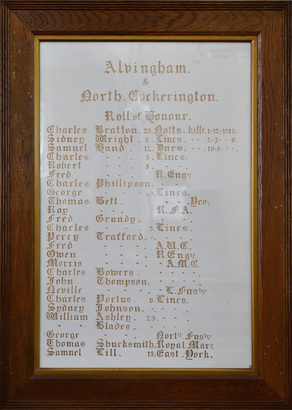 Alvingham.
&
North. Cockerington.
Roll of Honour.
Charles Bratton. 20. Notts. kill
Sidney Wright. 5. Lincs.
Samuel Hand . 12. Durm.
Charles " . 5. Lincs.
Robert " 3. "
Fred " . R. Engrs
Charles Phillipson.
George " . 5. Lincs.
Thomas Bett. Yeo:
Roy " . R.F.A.
Fred Grundy.
Charles " 5. Lincs.
Percy Trafford.
Fred " A.V.C.
Owen " R. Engrs
Morris " A.M.C.
Charles Bowers.
John Thompson.
Neville " L. Fuslrs
Charles Portus 6. Lincs.
Sydney Johnson.
William Ashley.
" Blades.
George " Northd Fuslrs
Thomas Shucksmith. Royal. Mar:
Samuel Lill. 15. East. York.